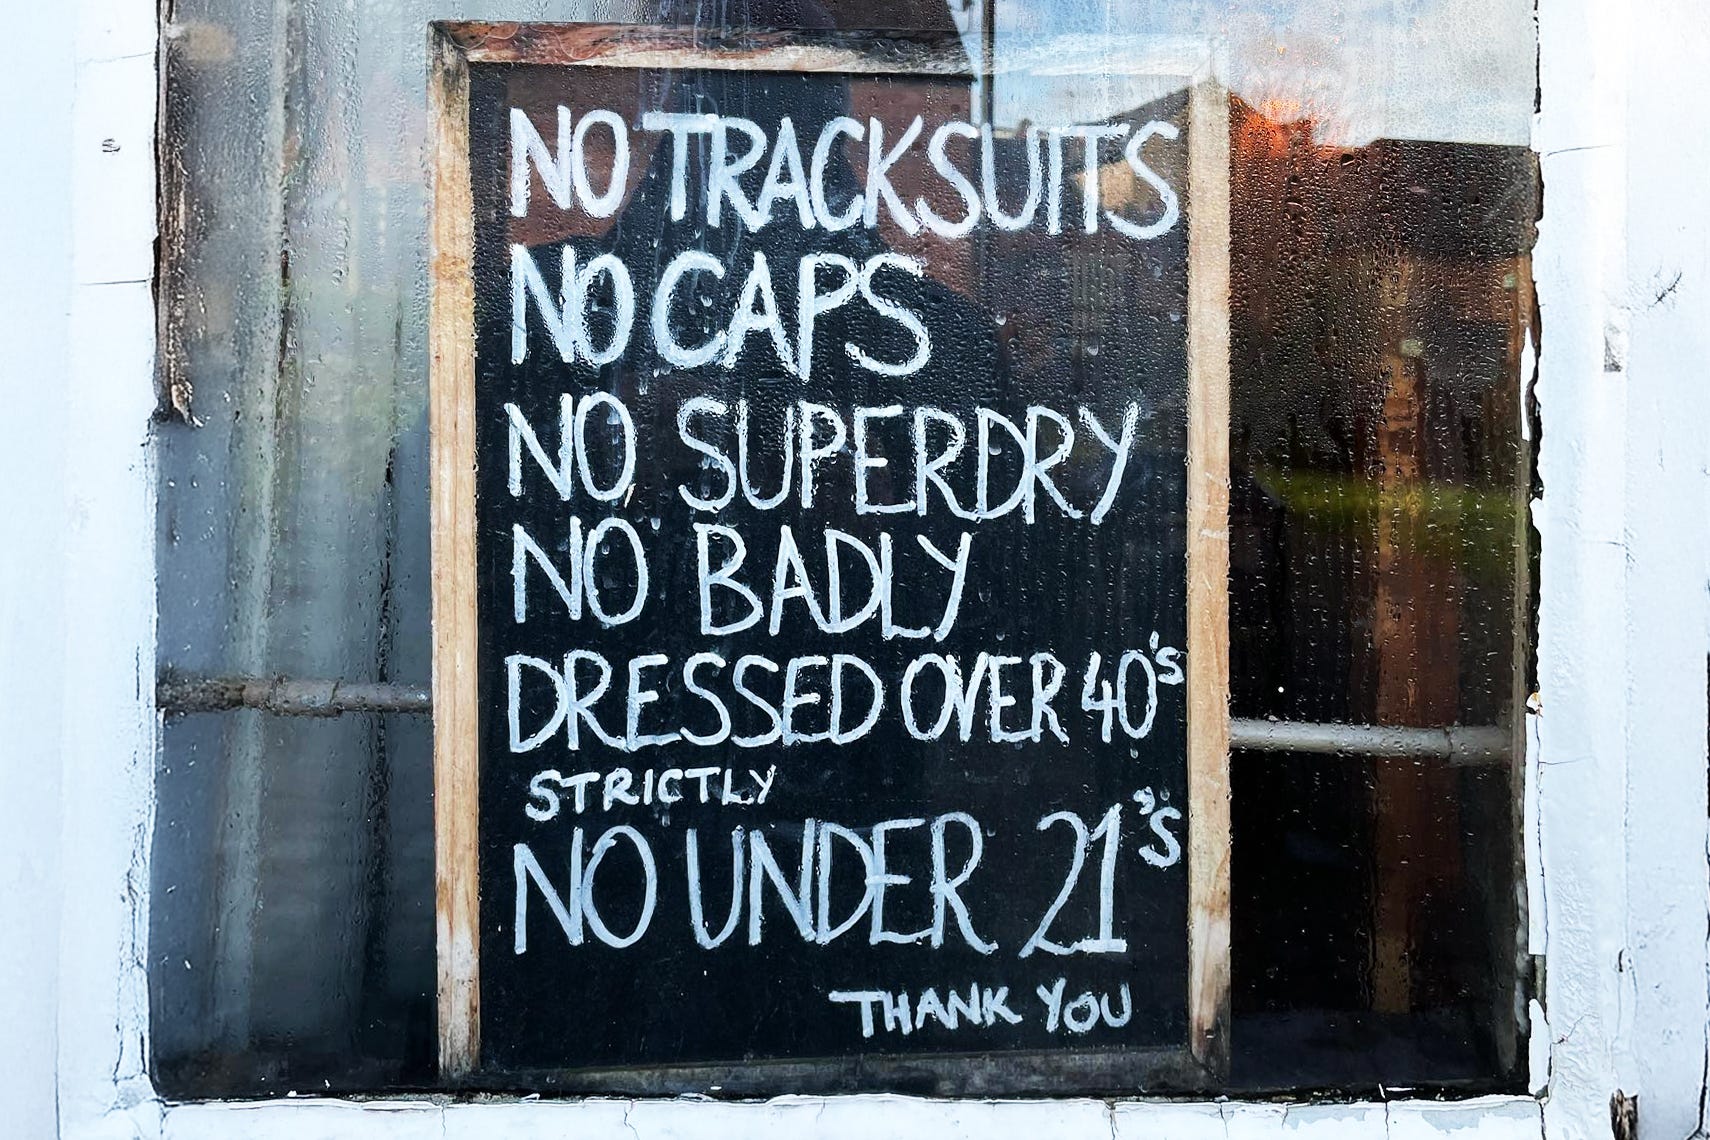 NO TRACKSUITS
NO CAPS
NO SUPERDRY
NO BADLY
DRESSED OVER 40'S
STRICTLY
NO UNDER 21'S
THANK YOU